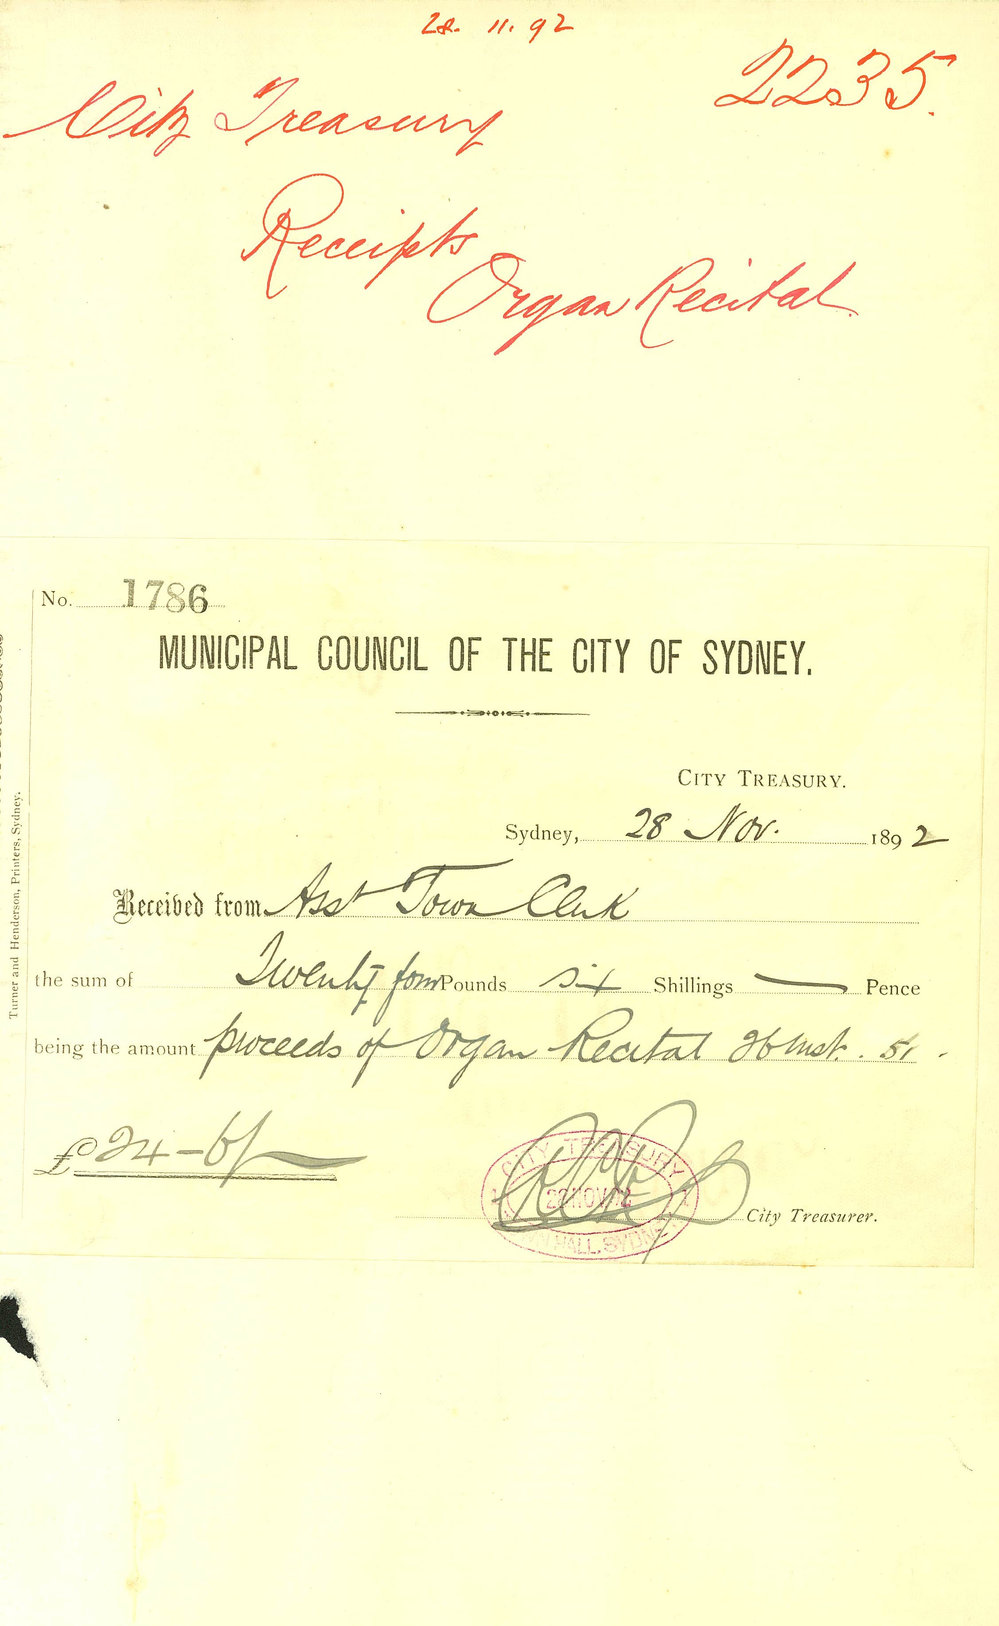 28. 11. 92
2235.
City Treasury
Receipts
Organ Recital.
No. 1786
MUNICIPAL COUNCIL OF THE CITY OF SYDNEY.
CITY TREASURY.
Sydney, 28 Nov. 1892
Received from Asst Town Clerk
the sum of Twenty four Pounds six Shillings — Pence
being the amount proceeds of Organ Recital 26 inst.
£24-6/
CITY TREASURY
28 NOV 92
TOWN HALL, SYDNEY
City Treasurer.
Turner and Henderson, Printers, Sydney.